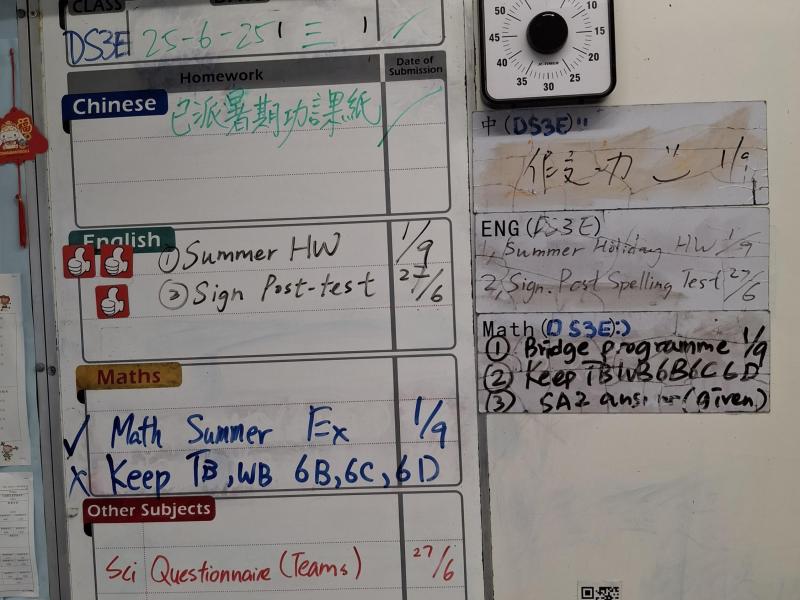 CLASS
DS3E 25-6-25 ( 三 )
Homework
Date of Submission
Chinese
已派暑期功課紙
English
① Summer HW 1/9
② Sign Post-test 27/6
Maths
✓ Math Summer Ex 1/9
x Keep TB, WB 6B, 6C, 6D
Other Subjects
Sci Questionnaire (Teams) 27/6
50 10
45 15
40 20
35 30 25
中 (DS3E)
1/9
ENG (DS3E)
1, Summer Holiday HW 1/9
2, Sign. Post Spelling Test 27/6
Math (DS3E):)
① Bridge programme 1/9
② Keep TB WB 6B 6C 6D
③ SA2 (given)